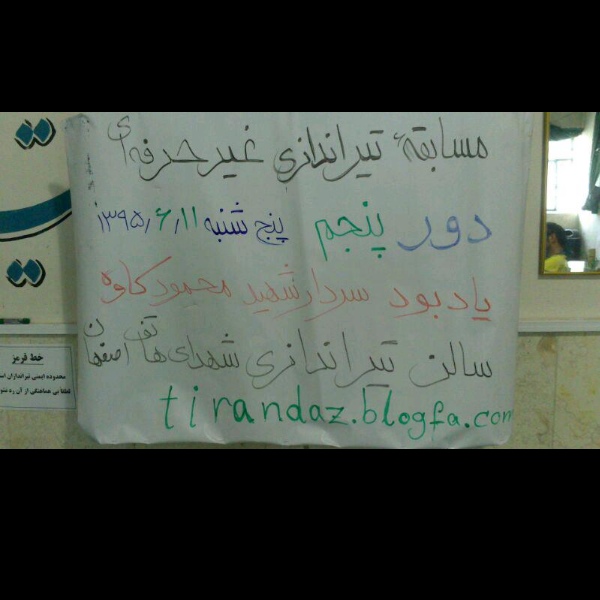 مسابقهٔ تیراندازی غیرحرفه‌ای
دور پنجم پنج شنبه ۱۳۹۵٫۶٫۱۱
یادبود سردار شهید محمود کاوه
سالن تیراندازی شهدای هاتف اصفهان
tirandaz.blogfa.com
خط قرمز
محدوده ایمنی تیراندازان
لطفا بی هماهنگی از آن رد نشوید